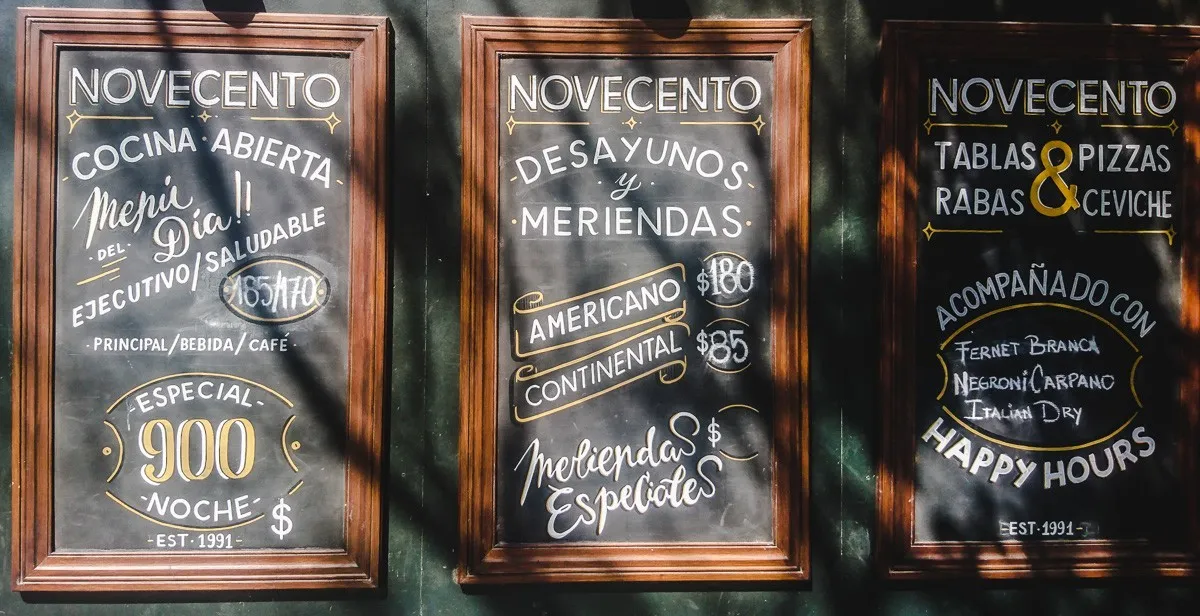 NOVECENTO
COCINA ABIERTA
Menú
DEL Día!!
EJECUTIVO/SALUDABLE
185/170
PRINCIPAL/BEBIDA/CAFÉ
ESPECIAL
900
NOCHE
$
EST·1991
NOVECENTO
DESAYUNOS
y
MERIENDAS
AMERICANO $180
CONTINENTAL $85
Meriendas $
Especiales
NOVECENTO
TABLAS & PIZZAS
RABAS CEVICHE
ACOMPAÑADO CON
FERNET BRANCA
NEGRONI CARPANO
ITALIAN DRY
HAPPY HOURS
EST·1991